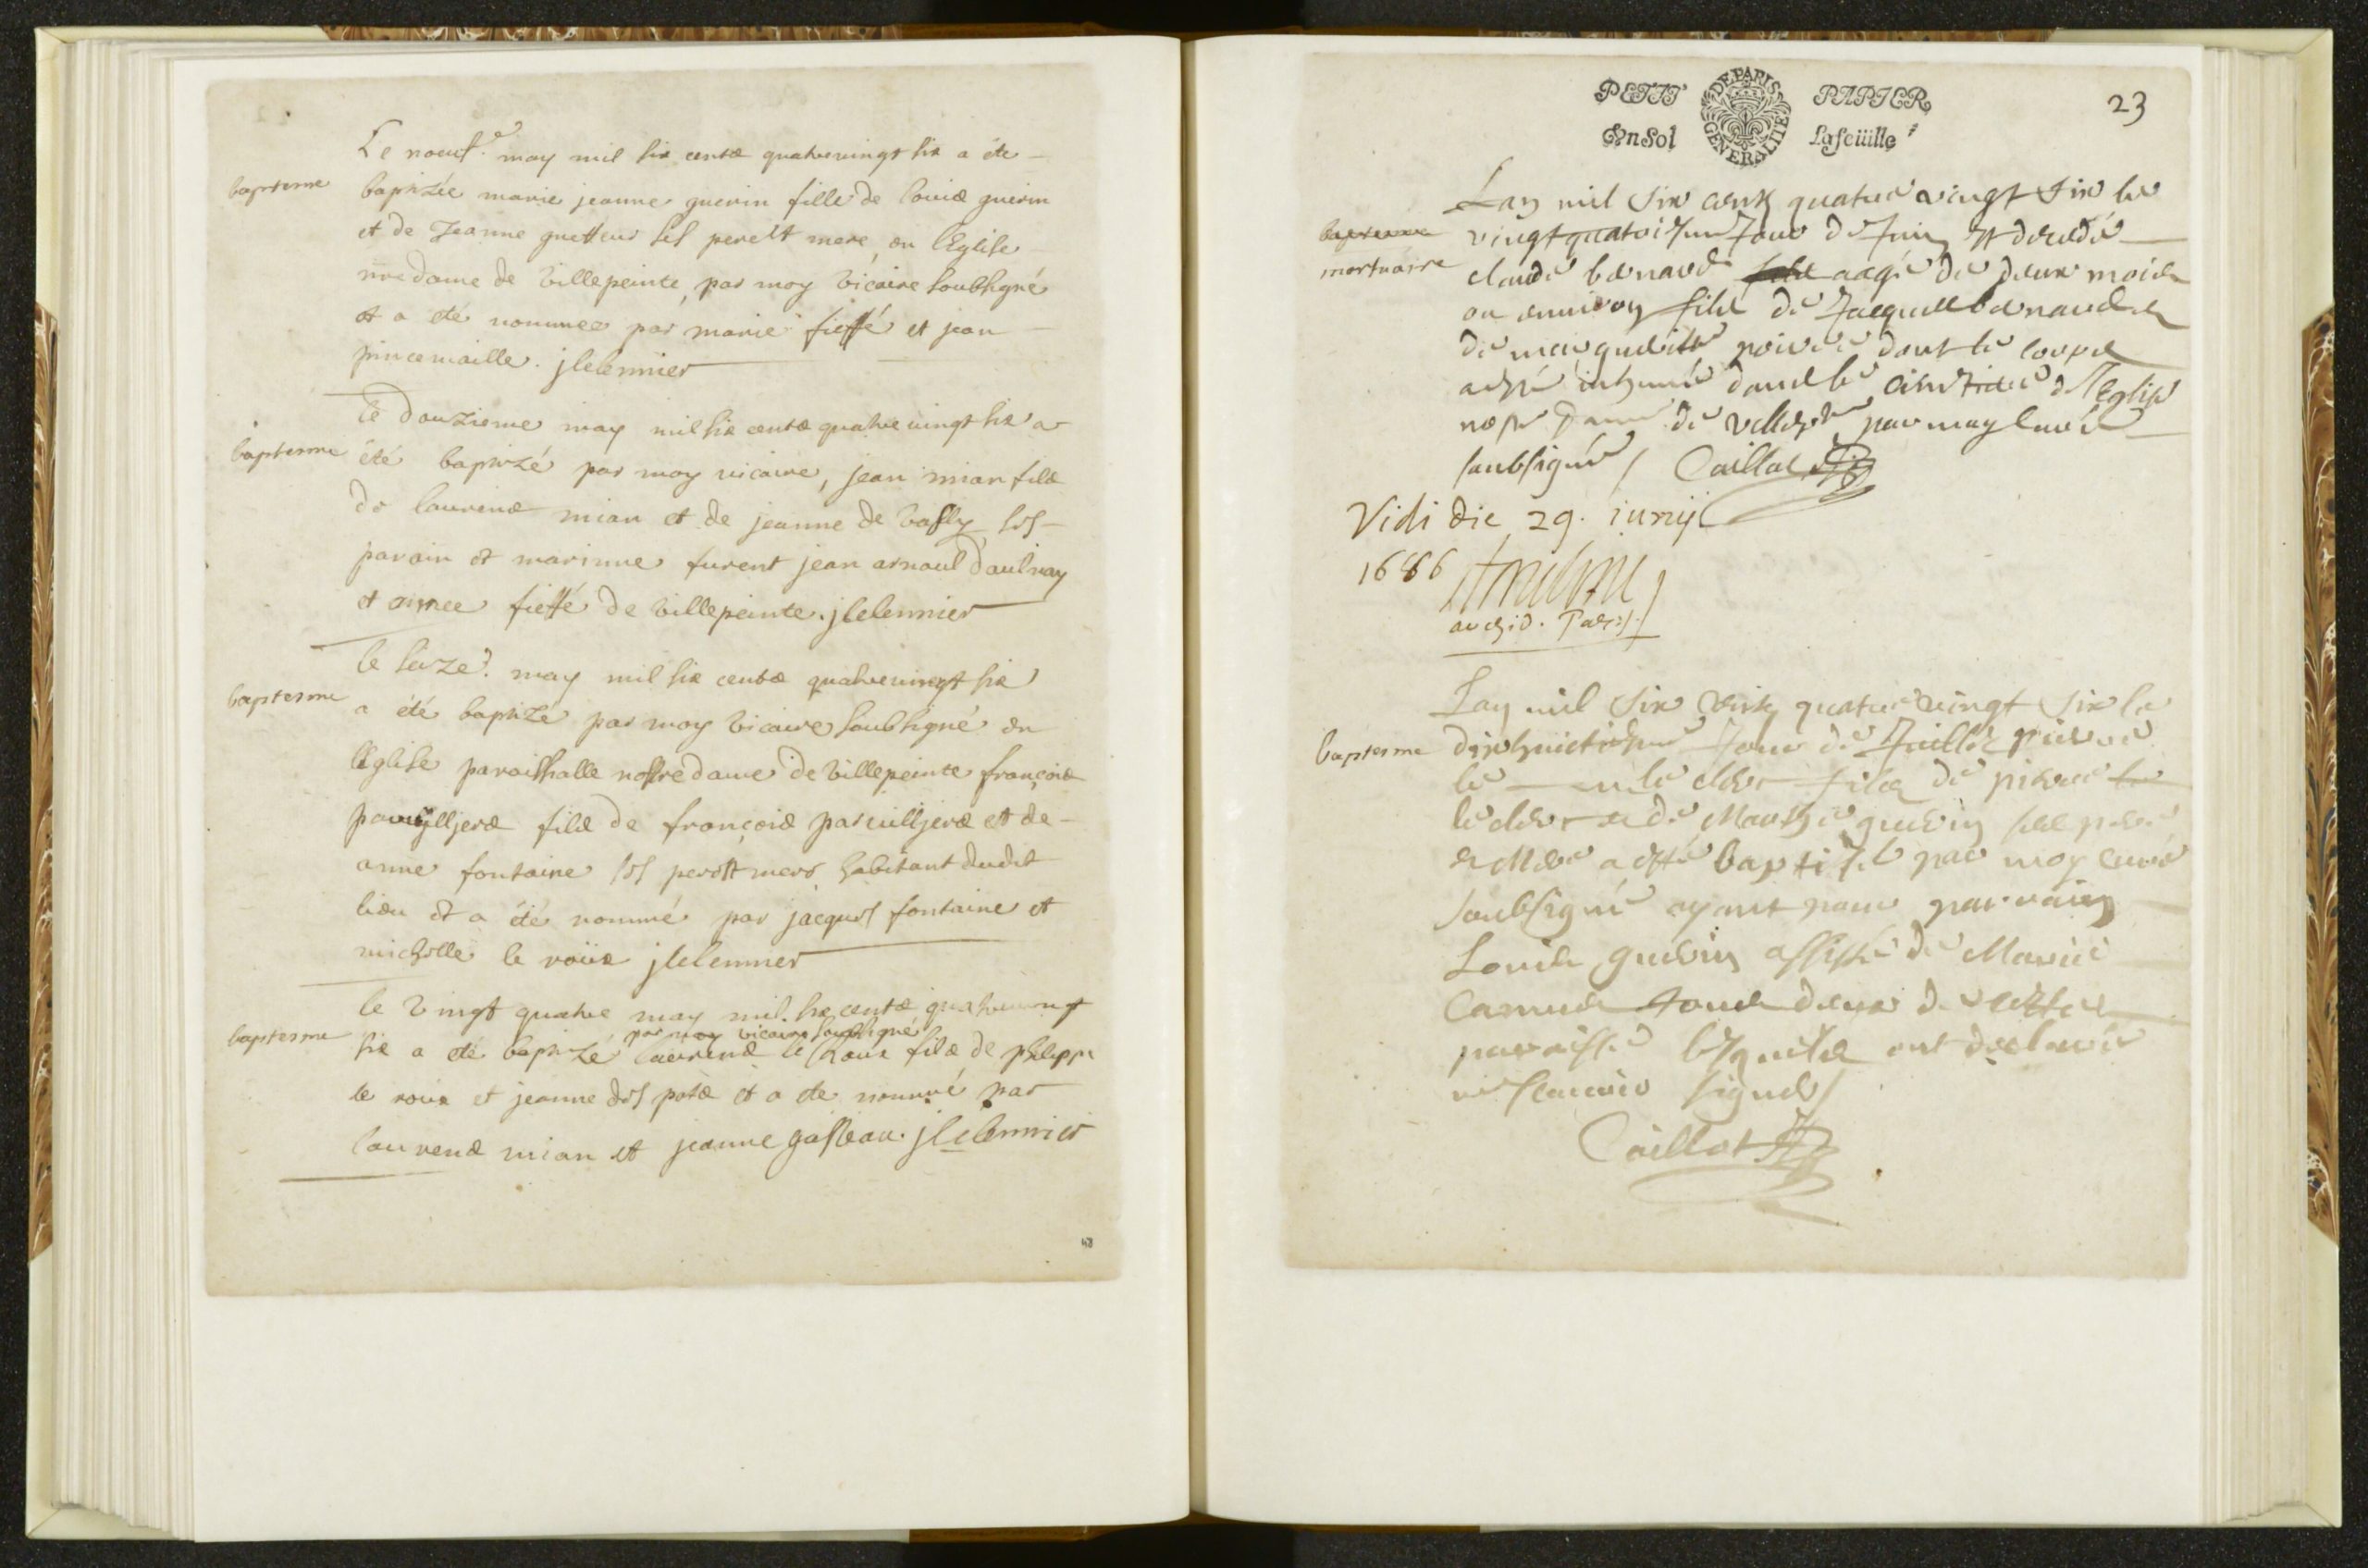 Le noeuf.e may mil six cents quatrevingt six a été
baptesme
baptizée marie jeanne guerin fille de louis guerin
et de Jeanne guetteur ses pere et mere, en l'Eglise
nre dame de Villepeinte, par moy vicaire soubsigné
et a été nommee par marie fieffé et jean
pincemaille. jlelennier
le douzieme may mil six cents quatrevingt six a
baptesme
été baptizé par moy vicaire, jean mian fils
de laurens mian et de jeanne de vassy ses
parain et marinne furent jean arnoul d'aulnay
et aimee fieffé de Villepeinte. jlelennier
le seize. may mil six cents quatrevingt six
baptesme
a été baptizé par moy vicaire soubsigné en
l'Eglise paroissialle nostre dame de Villepeinte françois
fils de françois et de
anne fontaine ses per et mere habitant dudit
lieu et a été nommé par jacques fontaine et
michelle le roüx jlelennier
le vingt quatre may mil six cents quatrevingt
baptesme
par moy vicaire soubsigné
six a été baptizé laurens le Roux fils de philippe
le roux et jeanne des pots et a été nommé par
laurens mian et jeanne gasteau. jlelennier
48
PETIT PAPIER
DE PARIS GENERALITE
Un Sol La feüille
23
Lan mil six cents quatre vingt six le
baptesme
mortuaire
vingt quatriesme Jour de Juin est decedé
claude benard aagé de deux mois
ou environ fils de Jacques benard et
de margueritte poirée dont le corps
a esté inhumé dans le cimetiere de l'Eglise
nostre Dame de par moy curé
soubsigné / Caillot
Vidi die 29. iunij
1686
archid. Paris.
Lan mil six cents quatre vingt six le
baptesme
dixhuictiesme Jour de Juillet pierre
le clerc fils de pierre le
le clerc et de Marthe guerin ses pere
et Mere a esté baptisé par moy curé
soubsigné ayant pour parrain
Louis guerin assisté de Marie
Camus tous deux de cette
paroisse lesquels ont declaré
ne scavoir signer /
Caillot